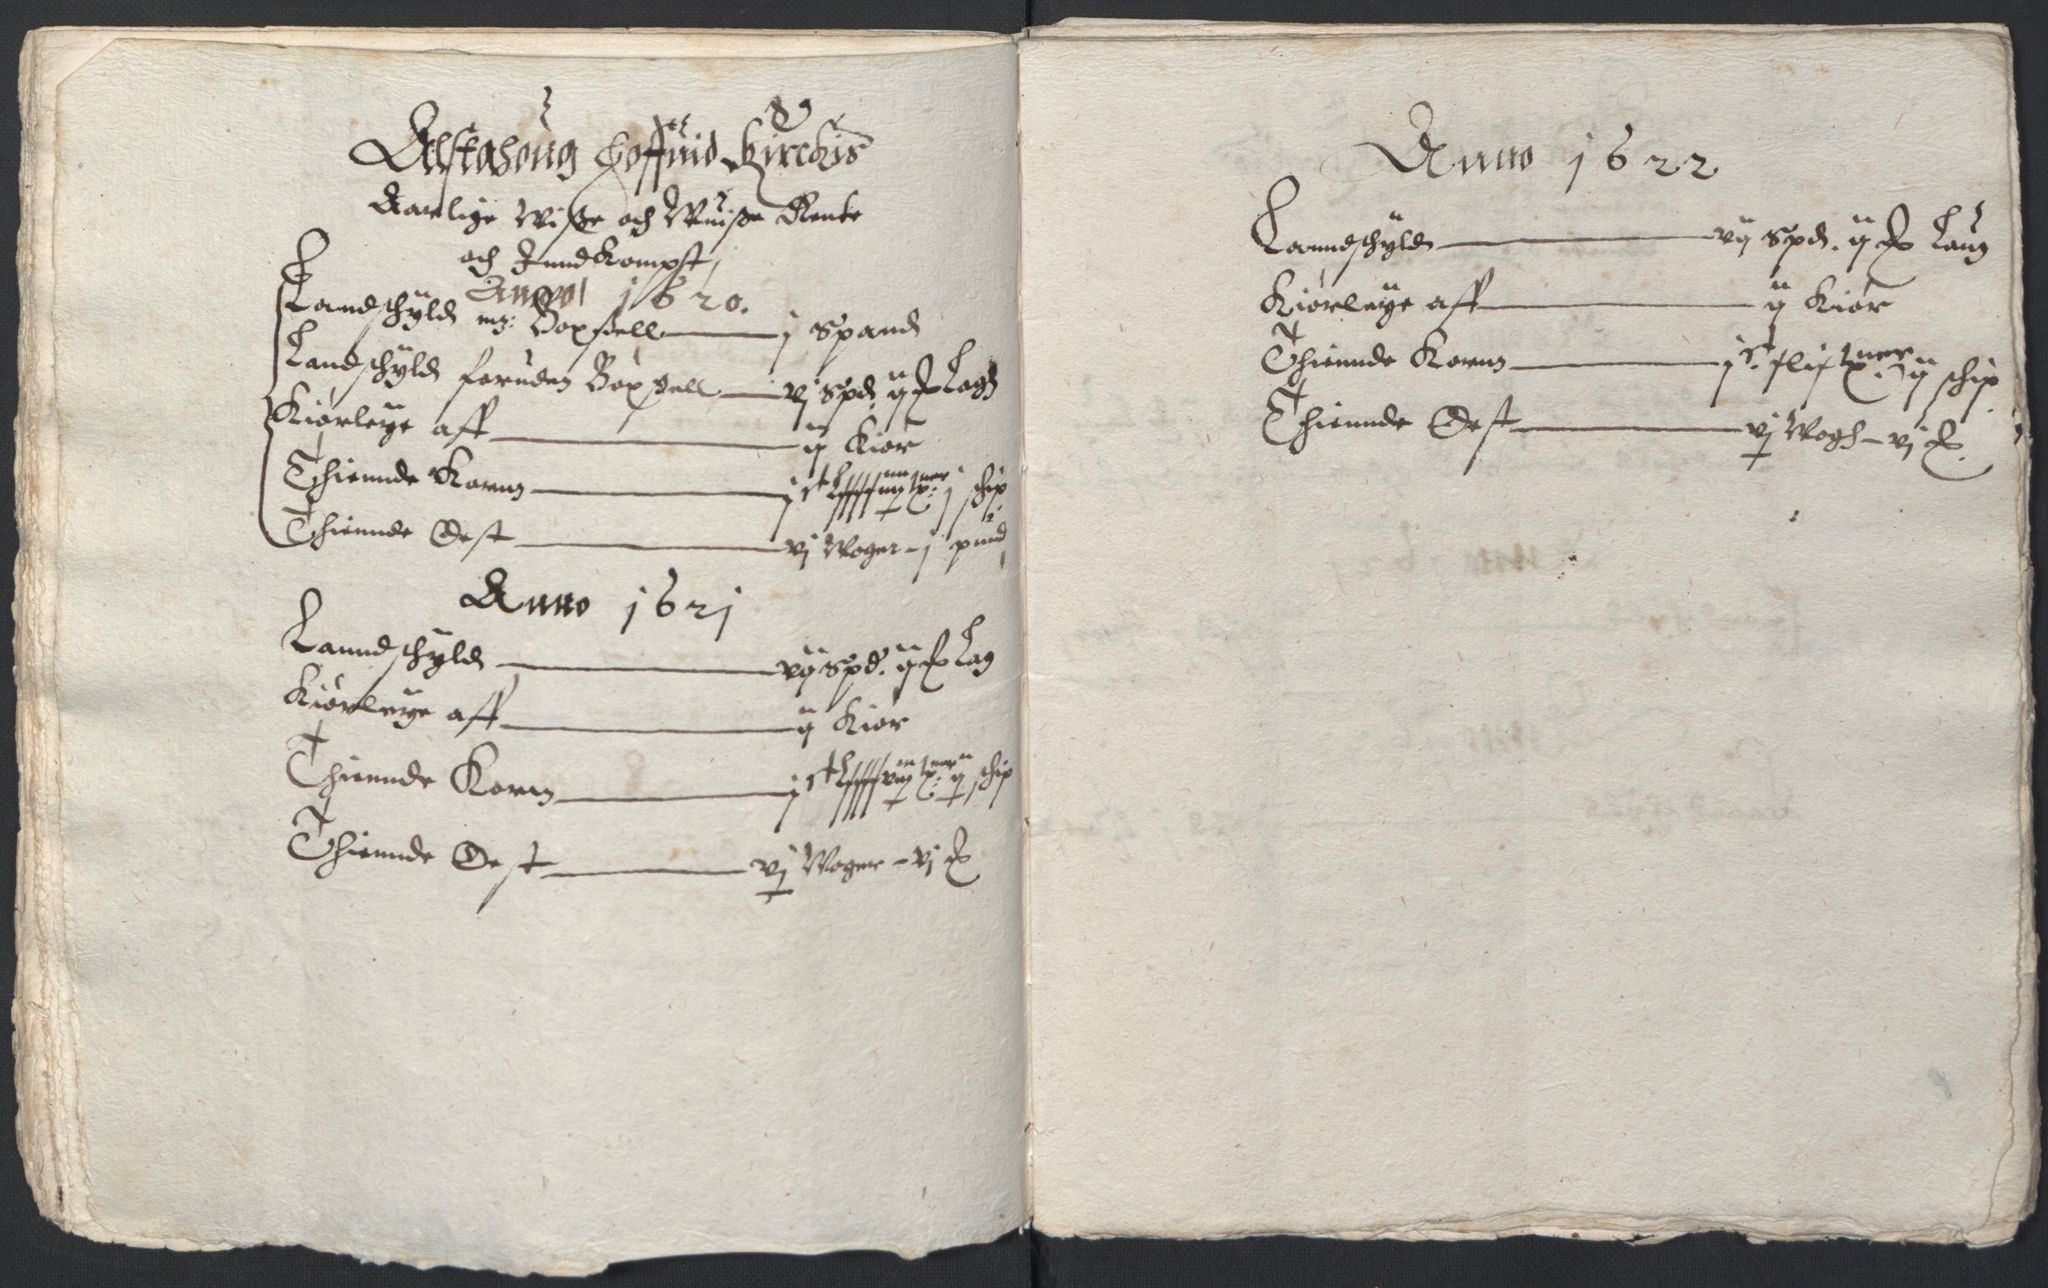 Alstahoug hoffuid Kirckis
Aarlige Wisse och Wuisse Rente
och Inndkompst
Anno 1620.
Landschyld mz: Boxsell — j Spand
Landschyld foruden Boxsell — vj Spd. ij # Lagh
Kiörleye aff — ij Kiör
Thiennde Kornn — j schip
Thiennde Oest — vj Woger – j pund
Anno 1621
Lanndschyld — vij Spd. ij # Lag
Kiörleye aff — ij Kiör
Thiennde Kornn — ij schip
Thiennde Oest — vj Woger – vj #
Anno 1622
Lanndschyld — vij Spd. ij # Laug
Kiörleye aff — ij Kiör
Thiennde Kornn — ij schip.
Thiennde Oest — vj Wogh – vj #.